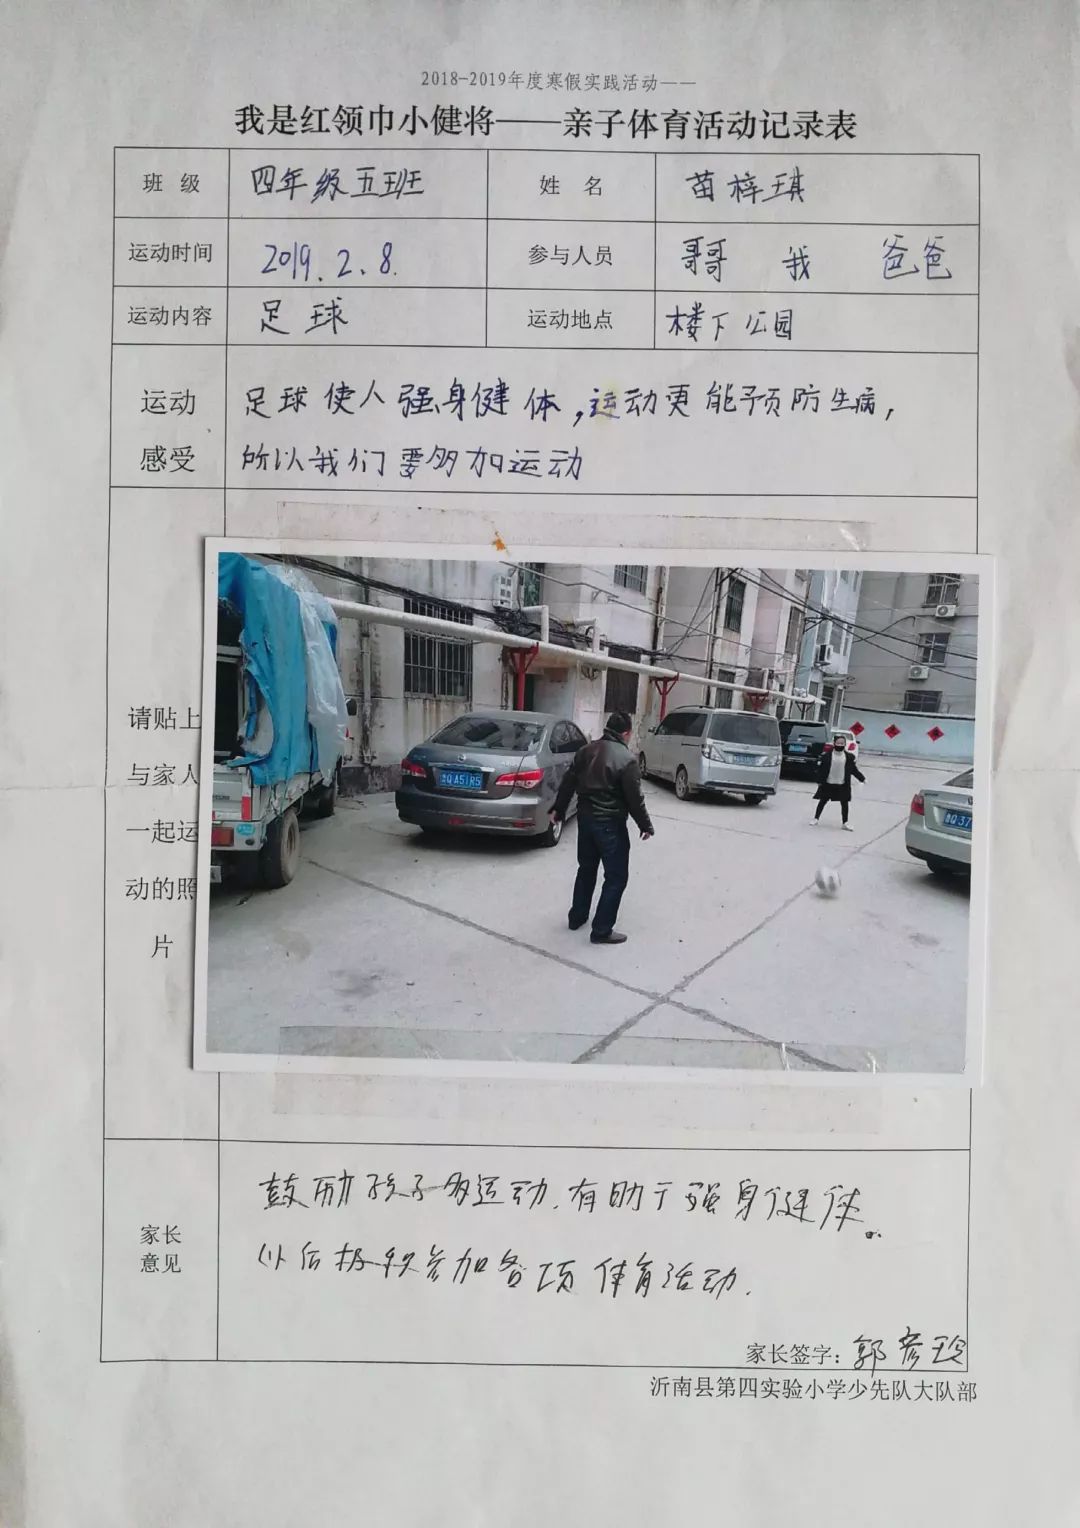 2018-2019年度寒假实践活动——
我是红领巾小健将——亲子体育活动记录表
班 级 四年级五班 姓 名 苗梓琪
运动时间 2019.2.8. 参与人员 哥哥 我 爸爸
运动内容 足球 运动地点 楼下公园
运动 足球使人强身健体,运动更能预防生病,
感受 所以我们要多加运动
请贴上
与家人
一起运
动的照
片
QA51R5
Q37
鼓励孩子多运动.有助于强身健体.
家长
意见
以后积极参加各项体育活动.
家长签字:郭彦玲
沂南县第四实验小学少先队大队部